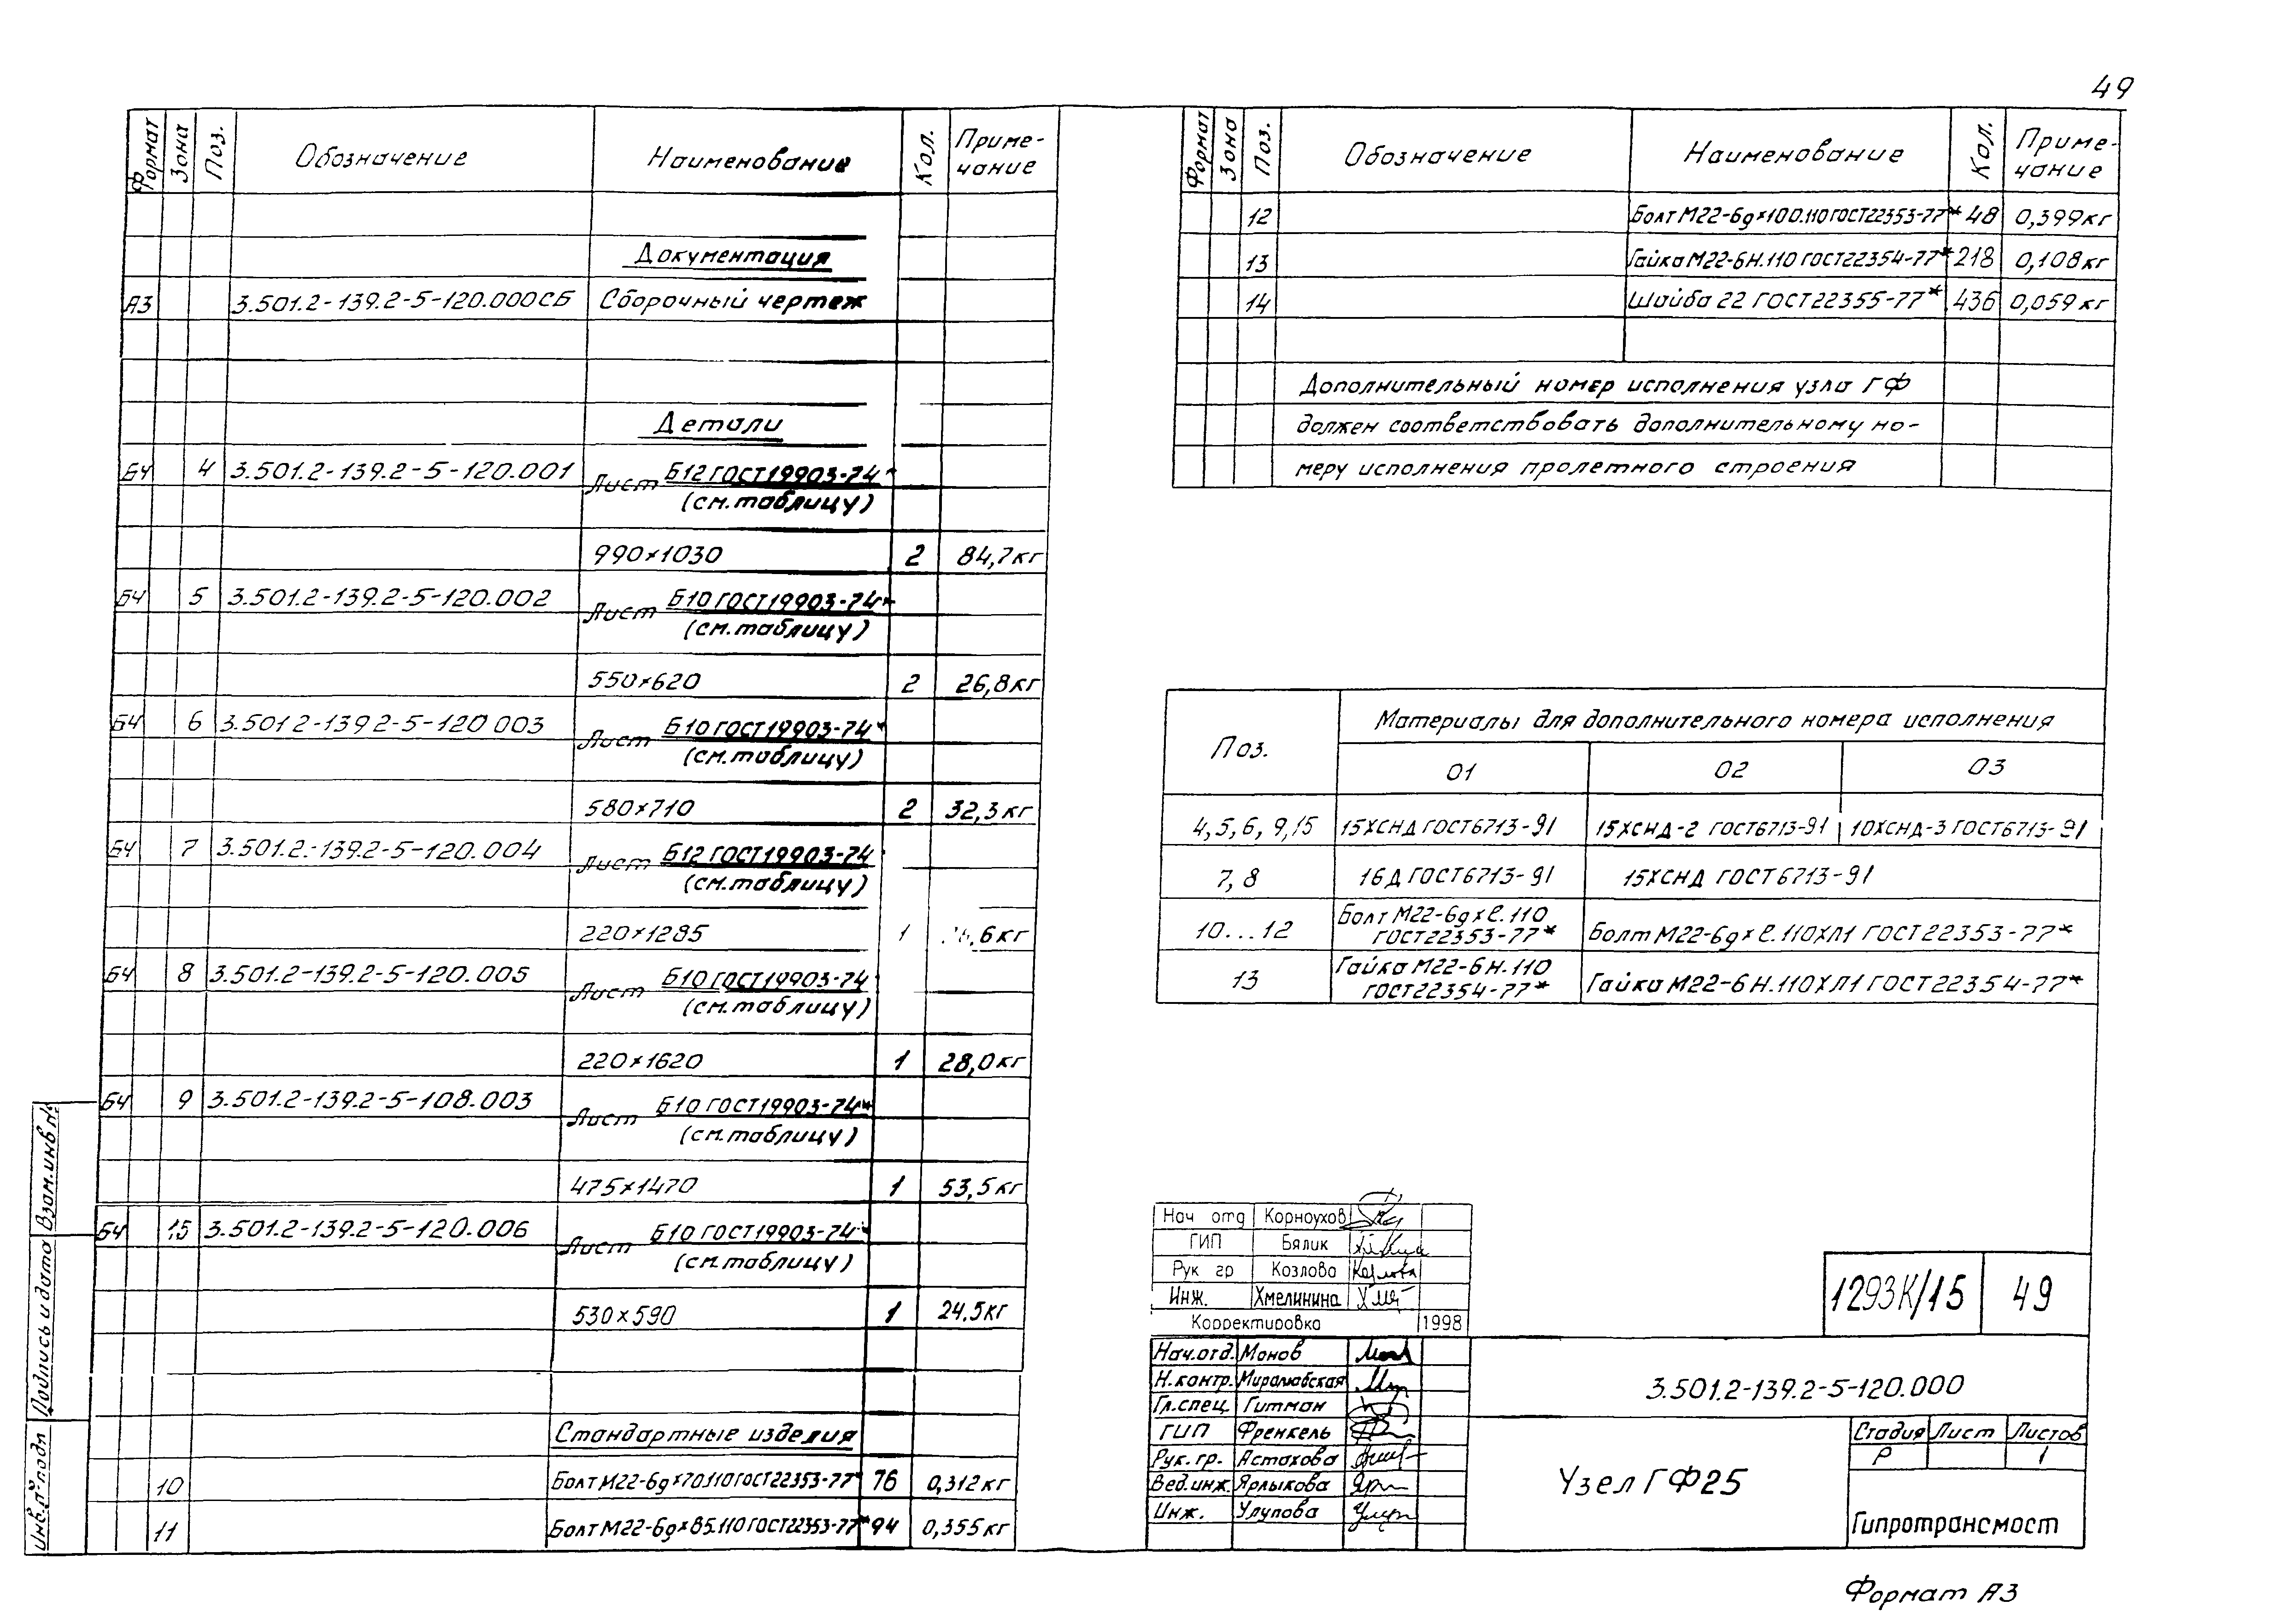 49
Формат Зона Поз. Обозначение Наименование Кол. Приме-
чание
Документация
А3 3.501.2-139.2-5-120.000СБ Сборочный чертеж
Детали
БЧ 4 3.501.2-139.2-5-120.001 Лист Б12 ГОСТ19903-74*
(см. таблицу)
990×1030 2 84,7кг
БЧ 5 3.501.2-139.2-5-120.002 Лист Б10 ГОСТ19903-74*
(см. таблицу)
550×620 2 26,8кг
БЧ 6 3.501 2-139 2-5-120 003 Лист Б10 ГОСТ19903-74*
(см. таблицу)
580×710 2 32,3кг
БЧ 7 3.501.2.-139.2-5-120.004 Лист Б12 ГОСТ19903-74
(см. таблицу)
220×1285 1 6кг
БЧ 8 3.501.2-139.2-5-120.005 Лист Б10 ГОСТ19903-74
(см. таблицу)
220×1620 1 28,0кг
БЧ 9 3.501.2-139.2-5-108.003 Лист Б10 ГОСТ19903-74*
(см. таблицу)
475×1470 1 53,5кг
БЧ 15 3.501.2-139.2-5-120.006 Лист Б10 ГОСТ19903-74*
(см. таблицу)
530×590 1 24.5кг
Стандартные изделия
10 Болт М22-6g×70.110 ГОСТ22353-77* 76 0,312кг
11 Болт М22-6g×85.110 ГОСТ22353-77* 94 0,355кг
Взам.инв.№
Подпись и дата
Инв.№подл
Формат Зона Поз. Обозначение Наименование Кол. Приме-
чание
12 Болт М22-6g×100.110 ГОСТ22353-77* 48 0,399кг
13 Гайка М22-6Н.110 ГОСТ22354-77* 218 0,108кг
14 Шайба 22 ГОСТ22355-77* 436 0,059кг
Дополнительный номер исполнения узла ГФ
должен соответствовать дополнительному но-
меру исполнения пролетного строения
Поз. Материалы для дополнительного номера исполнения
01 02 03
4, 5, 6, 9, 15 15ХСНД ГОСТ6713-91 15ХСНД-2 ГОСТ6713-91 10ХСНД-3 ГОСТ6713-91
7, 8 16Д ГОСТ6713-91 15ХСНД ГОСТ6713-91
10...12 Болт М22-6g×ℓ.110
ГОСТ22353-77* Болт М22-6g×ℓ.110ХЛ1 ГОСТ22353-77*
13 Гайка М22-6Н.110
ГОСТ22354-77* Гайка М22-6Н.110ХЛ1 ГОСТ22354-77*
Нач отд Корноухов
ГИП Бялик
Рук гр Козлова
Инж. Хмелинина
Корректировка 1998
1293К/15 49
Нач.отд. Монов
Н.контр. Миролюбская
Гл.спец. Гитман
ГИП Френкель
Рук. гр. Астахова
Вед.инж. Ярлыкова
Инж. Улупова
3.501.2-139.2-5-120.000
Узел ГФ25
Стадия Лист Листов
Р 1
Гипротрансмост
Формат А3